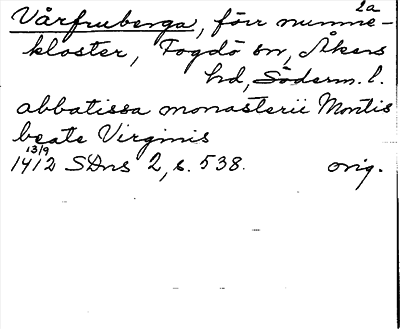 2a
Vårfruberga, förr nunne-
kloster, Fogdö sn, Åkers
hd, Söderm. l.
abbatissa monasterii Montis
beate Virginis
13/9
1412 SDns 2, s. 538. orig.